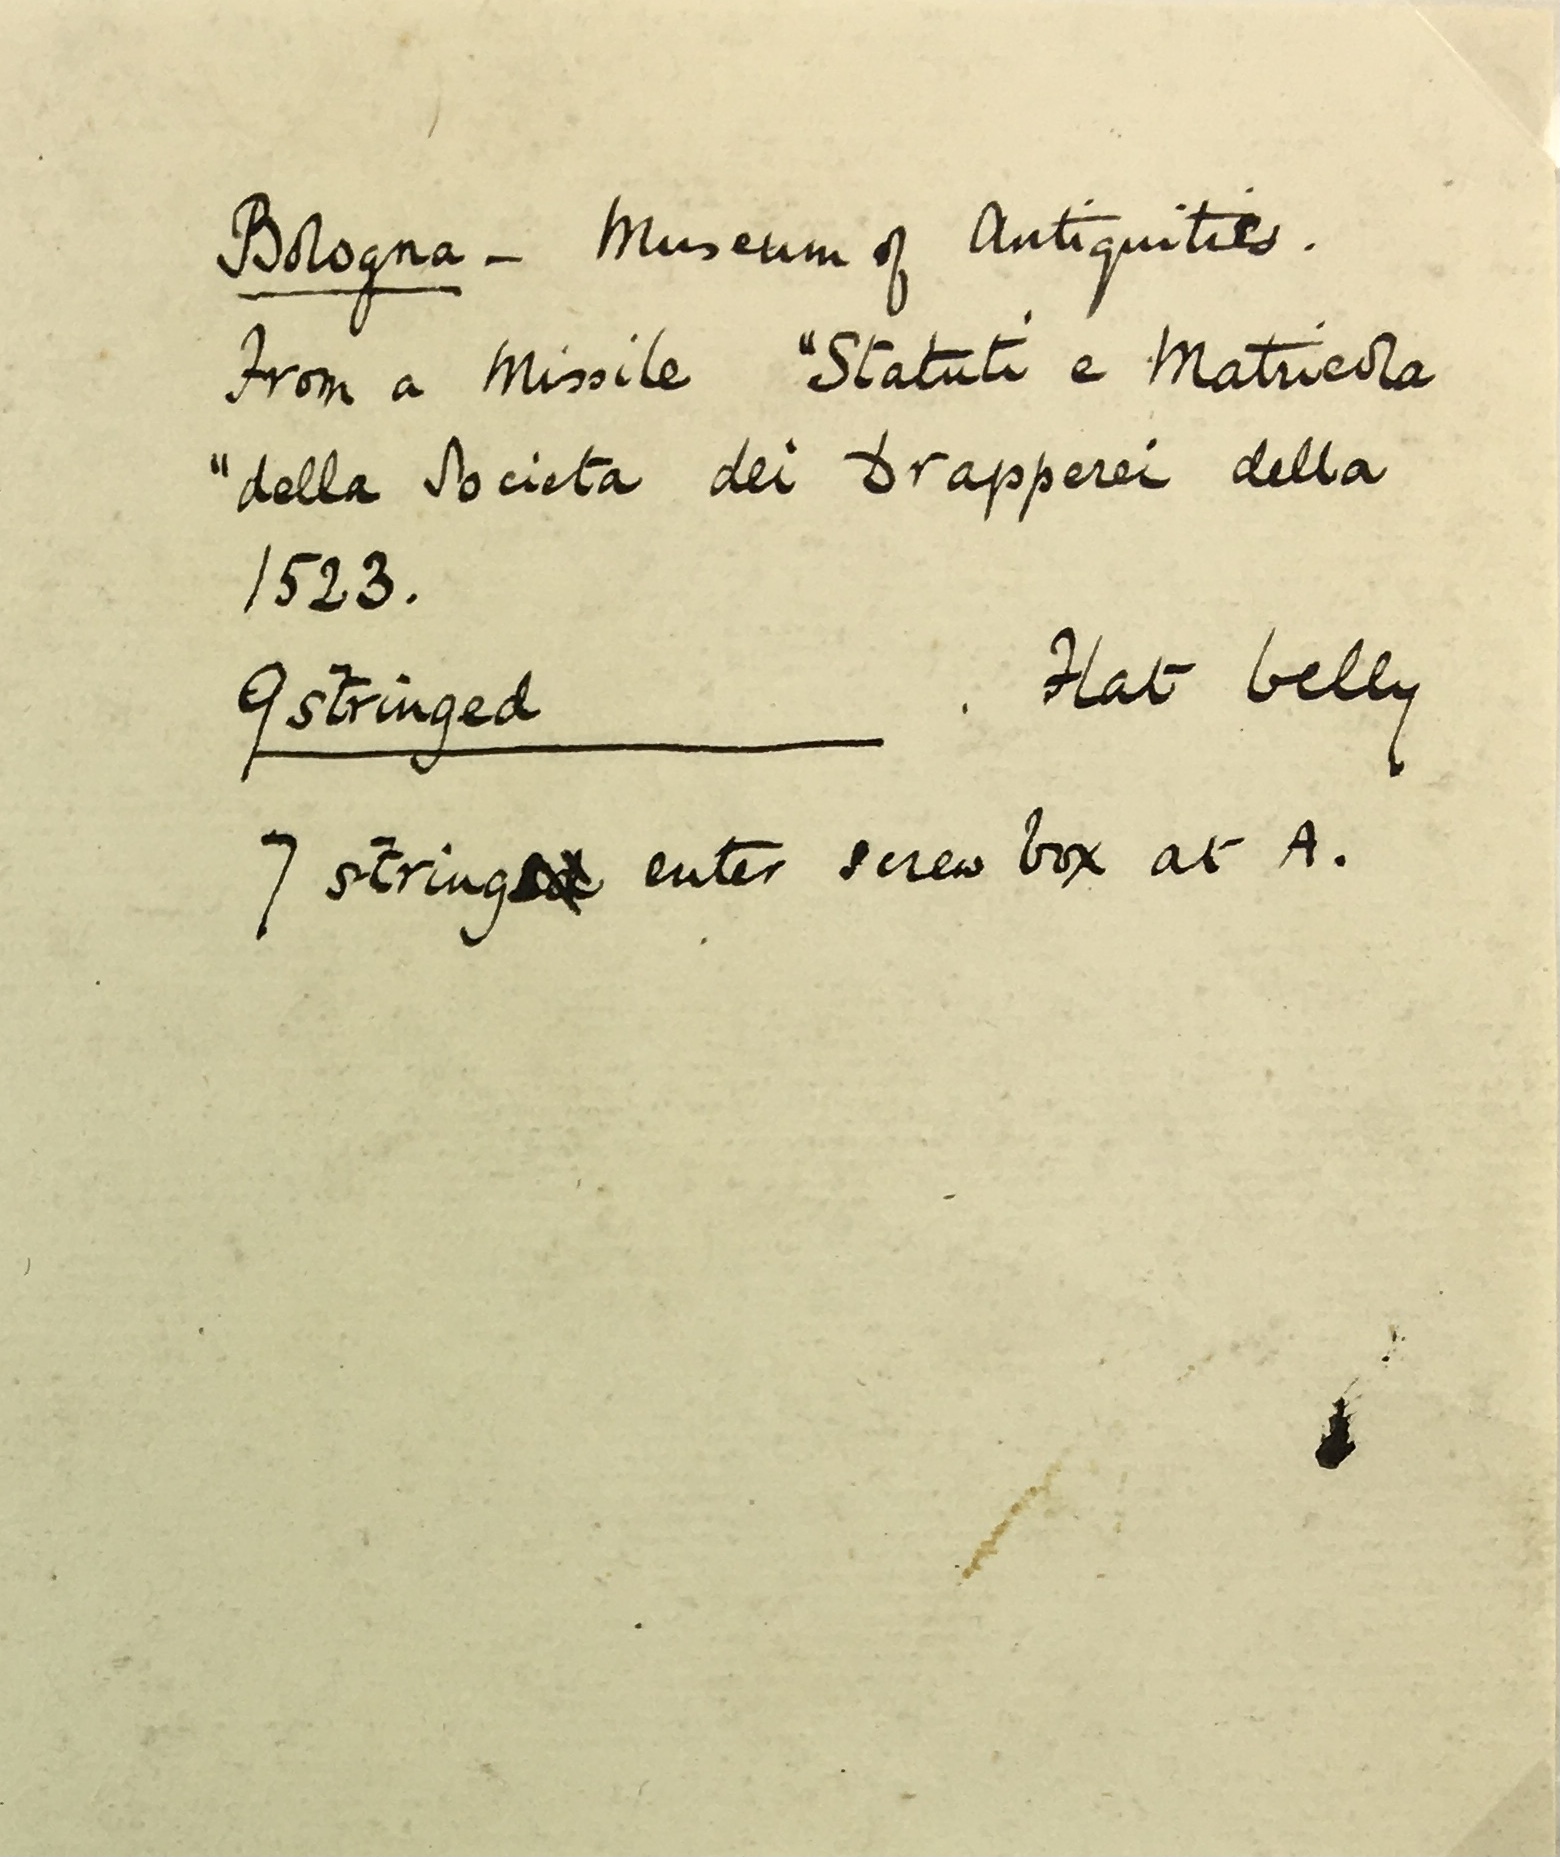 Bologna - Museum of Antiquities.
From a Missile "Statuti e Matricola
"della Societa dei Drapperei della
1523.
9 stringed . Flat belly
7 strings enter screw box at A.